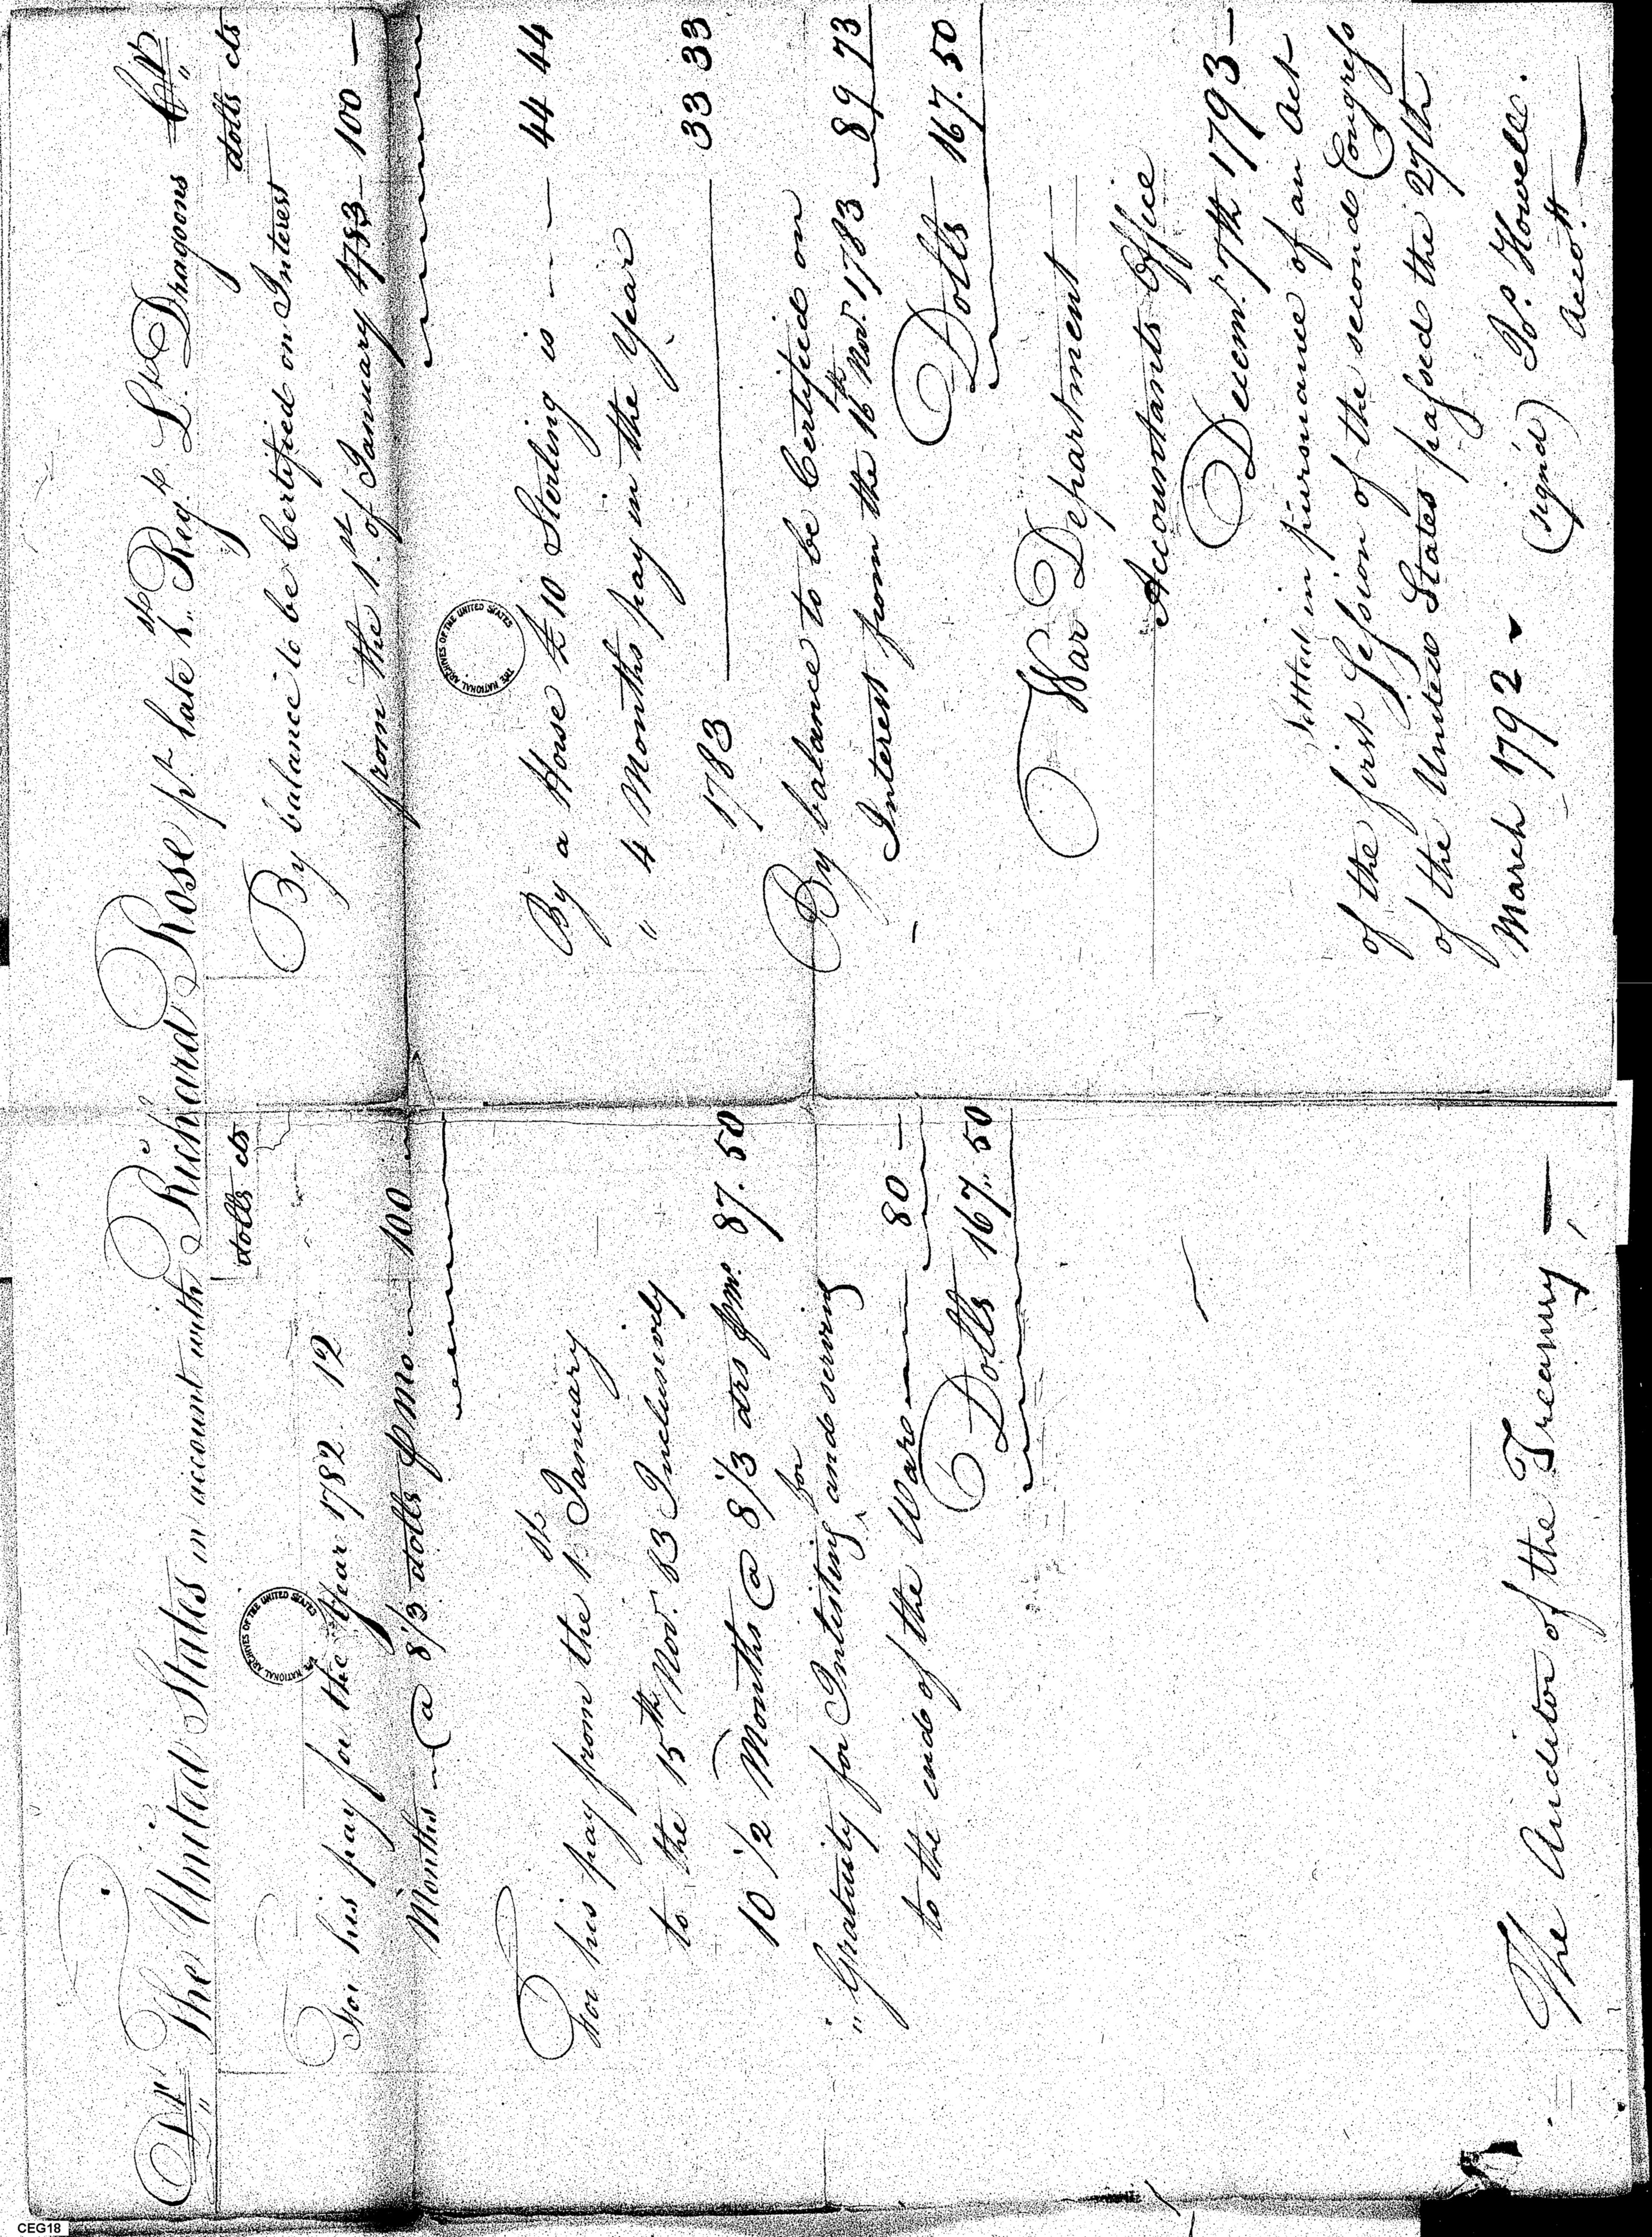 Dr. The United States in account with Richard Rose pt. late 1st. Regt. Lt. Dragoons Cr.
dolls cts
For his pay for the Year 1782. 12
Months @ 8 1/3 dolls p mo 100
For his pay from the 1st. January
to the 15th. Nov. 83 Inclusively
10 1/2 Months @ 8 1/3 drs p mo. 87.50
" Gratuity for Inlisting for and serving
to the end of the War 80 —
Dolls 167.50
The Auditor of the Treasury —
dolls cts
By balance to be Certified on Interest
from the 1st. of January 1783 100 —
By a Horse £ 10 Sterling is — — — 44 44
" 4 Months pay in the Year
1783 33 33
By balance to be Certified on
Interest from the 16th Nov. 1783 89 73
Dolls 167.50
War Department
Accountants Office
Decem. 7th 1793 —
Settled in pursuance of an Act
of the first Session of the second Congress
of the United States passed the 27th
March 1792
(sign'd) Jos. Howell.
Acco.tt
THE NATIONAL ARCHIVES OF THE UNITED STATES
THE NATIONAL ARCHIVES OF THE UNITED STATES
CEG18